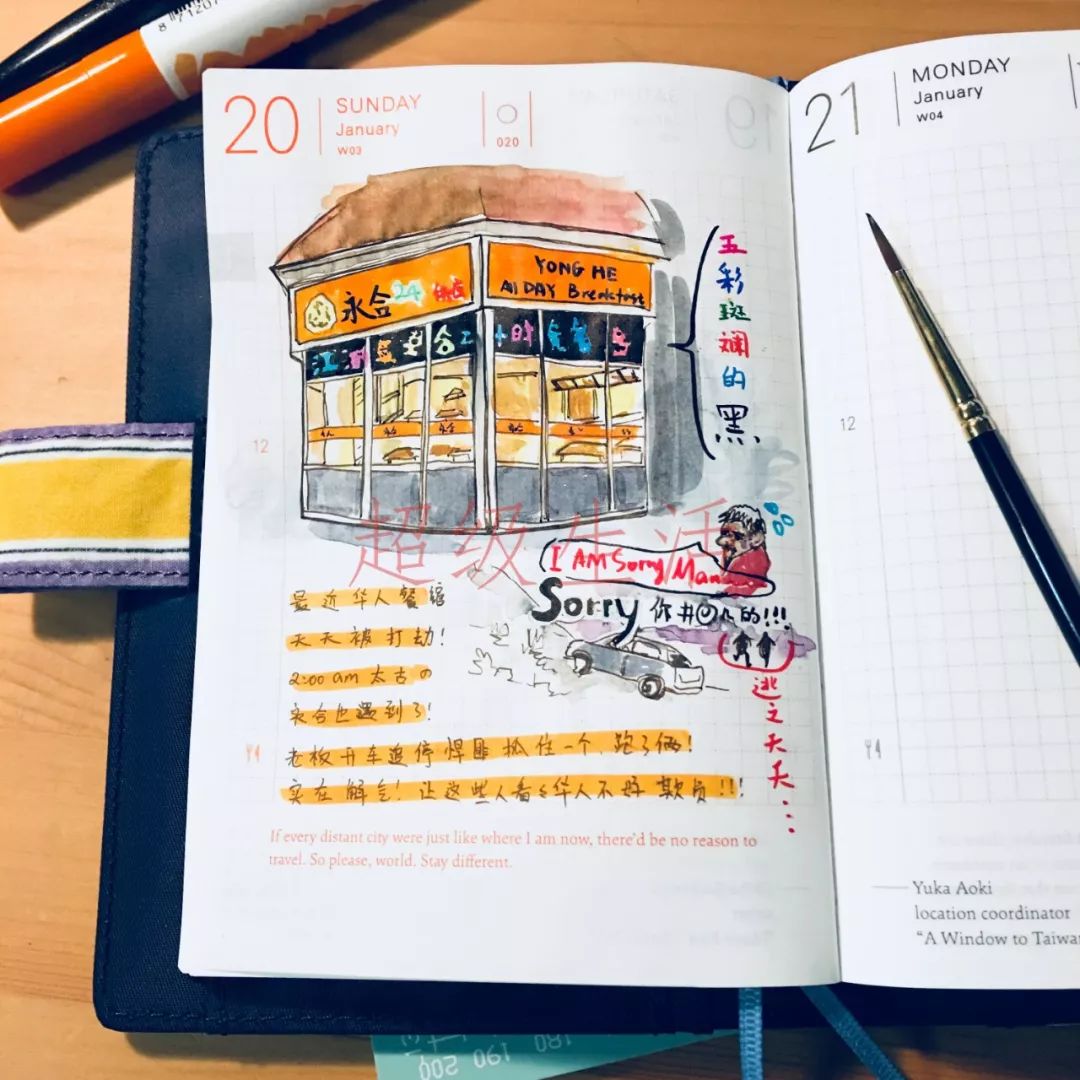 8 71207
20
SUNDAY
January
W03
020
21
MONDAY
January
W04
永合24
YONG HE
All DAY Breakfast
五彩斑斓的黑
12
12
超级生活
I AM Sorry Man
Sorry 你#@几的!!!
逃之夭夭...
最近华人餐馆
天天被打劫!
2:00 am 太古の
永合也遇到了!
老板开车追停悍匪抓住一个,跑了俩!
实在解气!让这些人看看华人不好欺负!!!
If every distant city were just like where I am now, there'd be no reason to
travel. So please, world. Stay different.
Yuka Aoki
location coordinator
"A Window to Taiwan
180 190 200